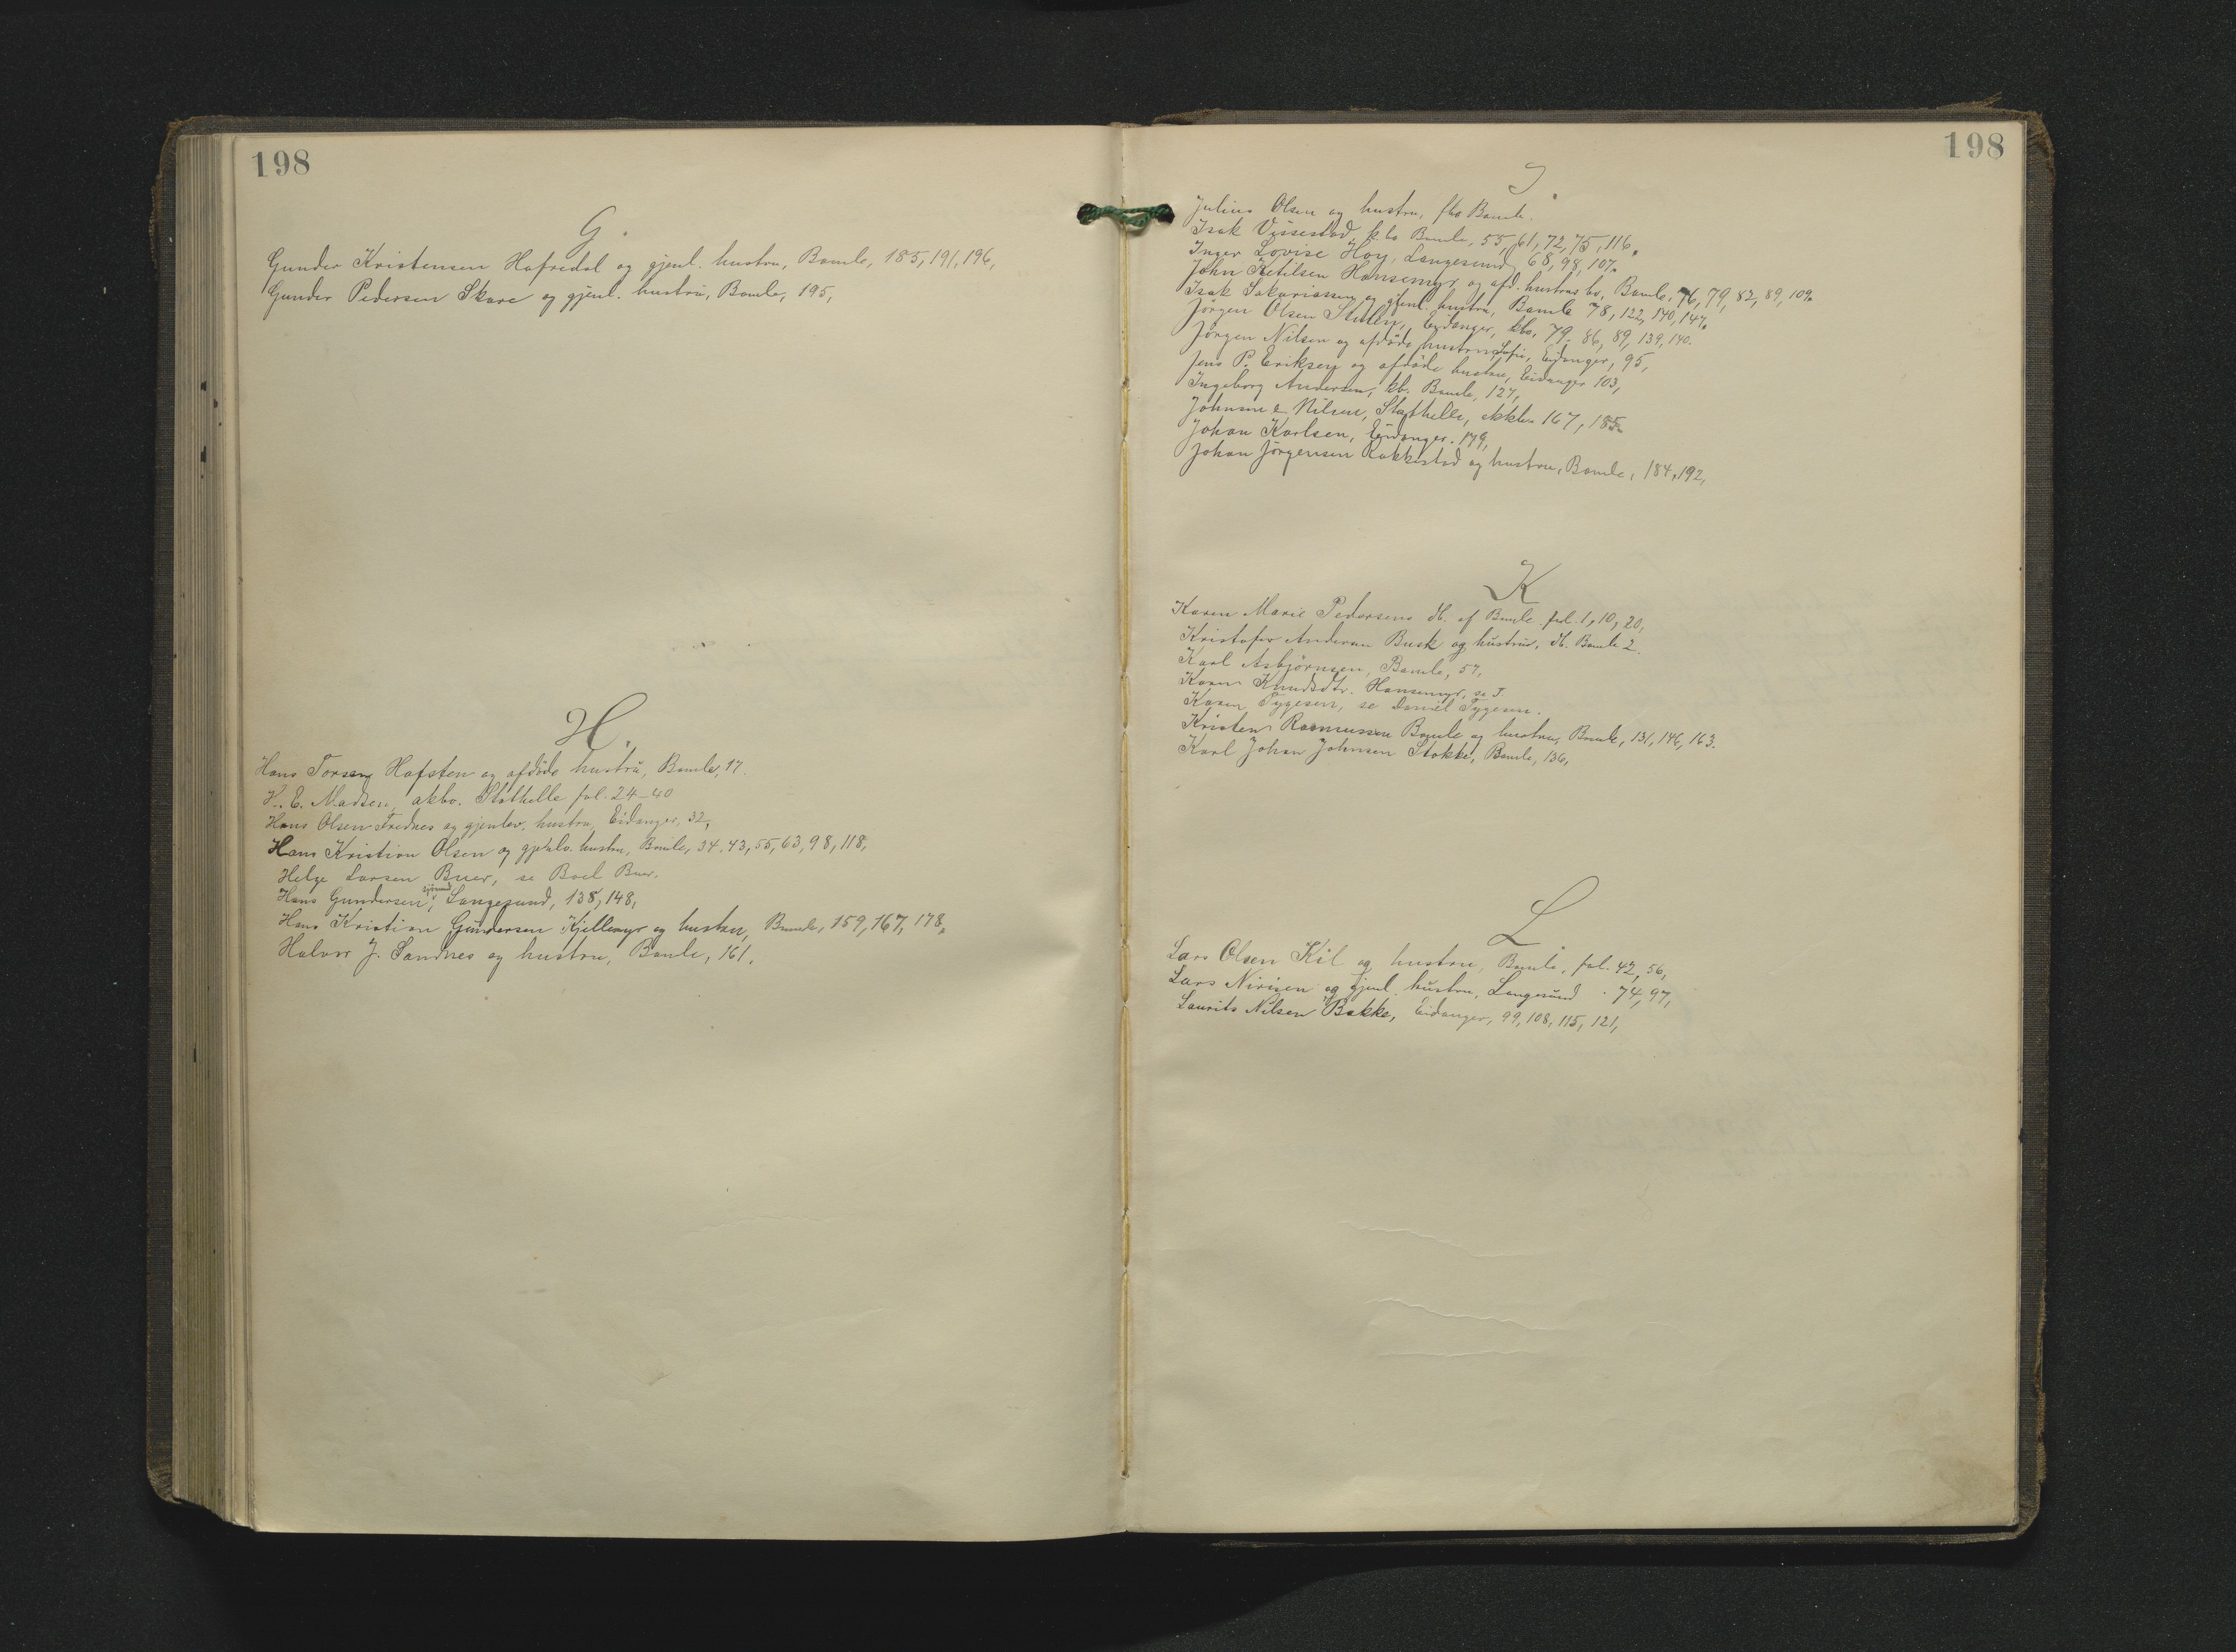 198
G.
Gunder Kristensen Hafredal og gjenl. hustru, Bamle, 185, 191, 196,
Gunder Pedersen Skare og gjenl. hustru, Bamle, 195,
H.
Hans Torsen Hafsten og afdöde hustru, Bamle, 17.
H. E. Madsen, akbo. Stathelle fol. 24-40
Hans Olsen Frednes og gjenlev. hustru, Eidanger, 32,
Hans Kristian Olsen og gjenlv. hustru, Bamle, 34, 43, 55, 63, 98, 118,
Helge Larsen Buer, se Boel Buer.
Hans Gundersen, sjömand, Langesund, 138, 148,
Hans Kristian Gundersen Kjellemyr og hustru, Bamle, 159, 167, 178,
Halvor J. Sandnes og hustru, Bamle, 161,
198
J.
Julius Olsen og hustru, fbo Bamle.
Isak Vissestad, k.bo Bamle, 55, 61, 72, 75, 116.
Inger Lovise Höy, Langesund, 68, 98, 107.
John Ketilsen Hansemyr, og afd. hustrus bo, Bamle, 76, 79, 82, 89, 109.
Isak Sakariassen og gjenl. hustru, Bamle 78, 122, 140, 147.
Jörgen Olsen Stulen, Eidanger, kbo, 79, 86, 89, 139, 140.
Jörgen Nilsen og afdöde hustru Sofie, Eidanger, 95,
Jens P. Eriksen og afdöde hustru, Eidanger 103,
Ingeborg Andersen, kb. Bamle, 127,
Johnsen & Nilsen, Stathelle, akkbo 167, 185.
Johan Karlsen, Eidanger. 179,
Johan Jörgensen Rakkestad og hustru, Bamle, 184, 192,
K
Karen Marie Pedersens db. af Bamle fol. 1, 10, 20,
Kristofer Andersen Busk og hustrus, db. Bamle 2.
Karl Asbjörnsen, Bamle, 57,
Karen Knudsdtr. Hansemyr, se J.
Karen Tygesen, se Daniel Tygesen.
Kristen Rasmussen Bamle og hustru, Bamle, 131, 146, 163.
Karl Johan Johnsen Stokke, Bamle, 136,
L
Lars Olsen Kil og hustru, Bamle, fol. 42, 56,
Lars Nirisen og gjenl. hustru, Langesund. 74, 97,
Laurits Nilsen Bakke, Eidanger, 99, 108, 115, 121,